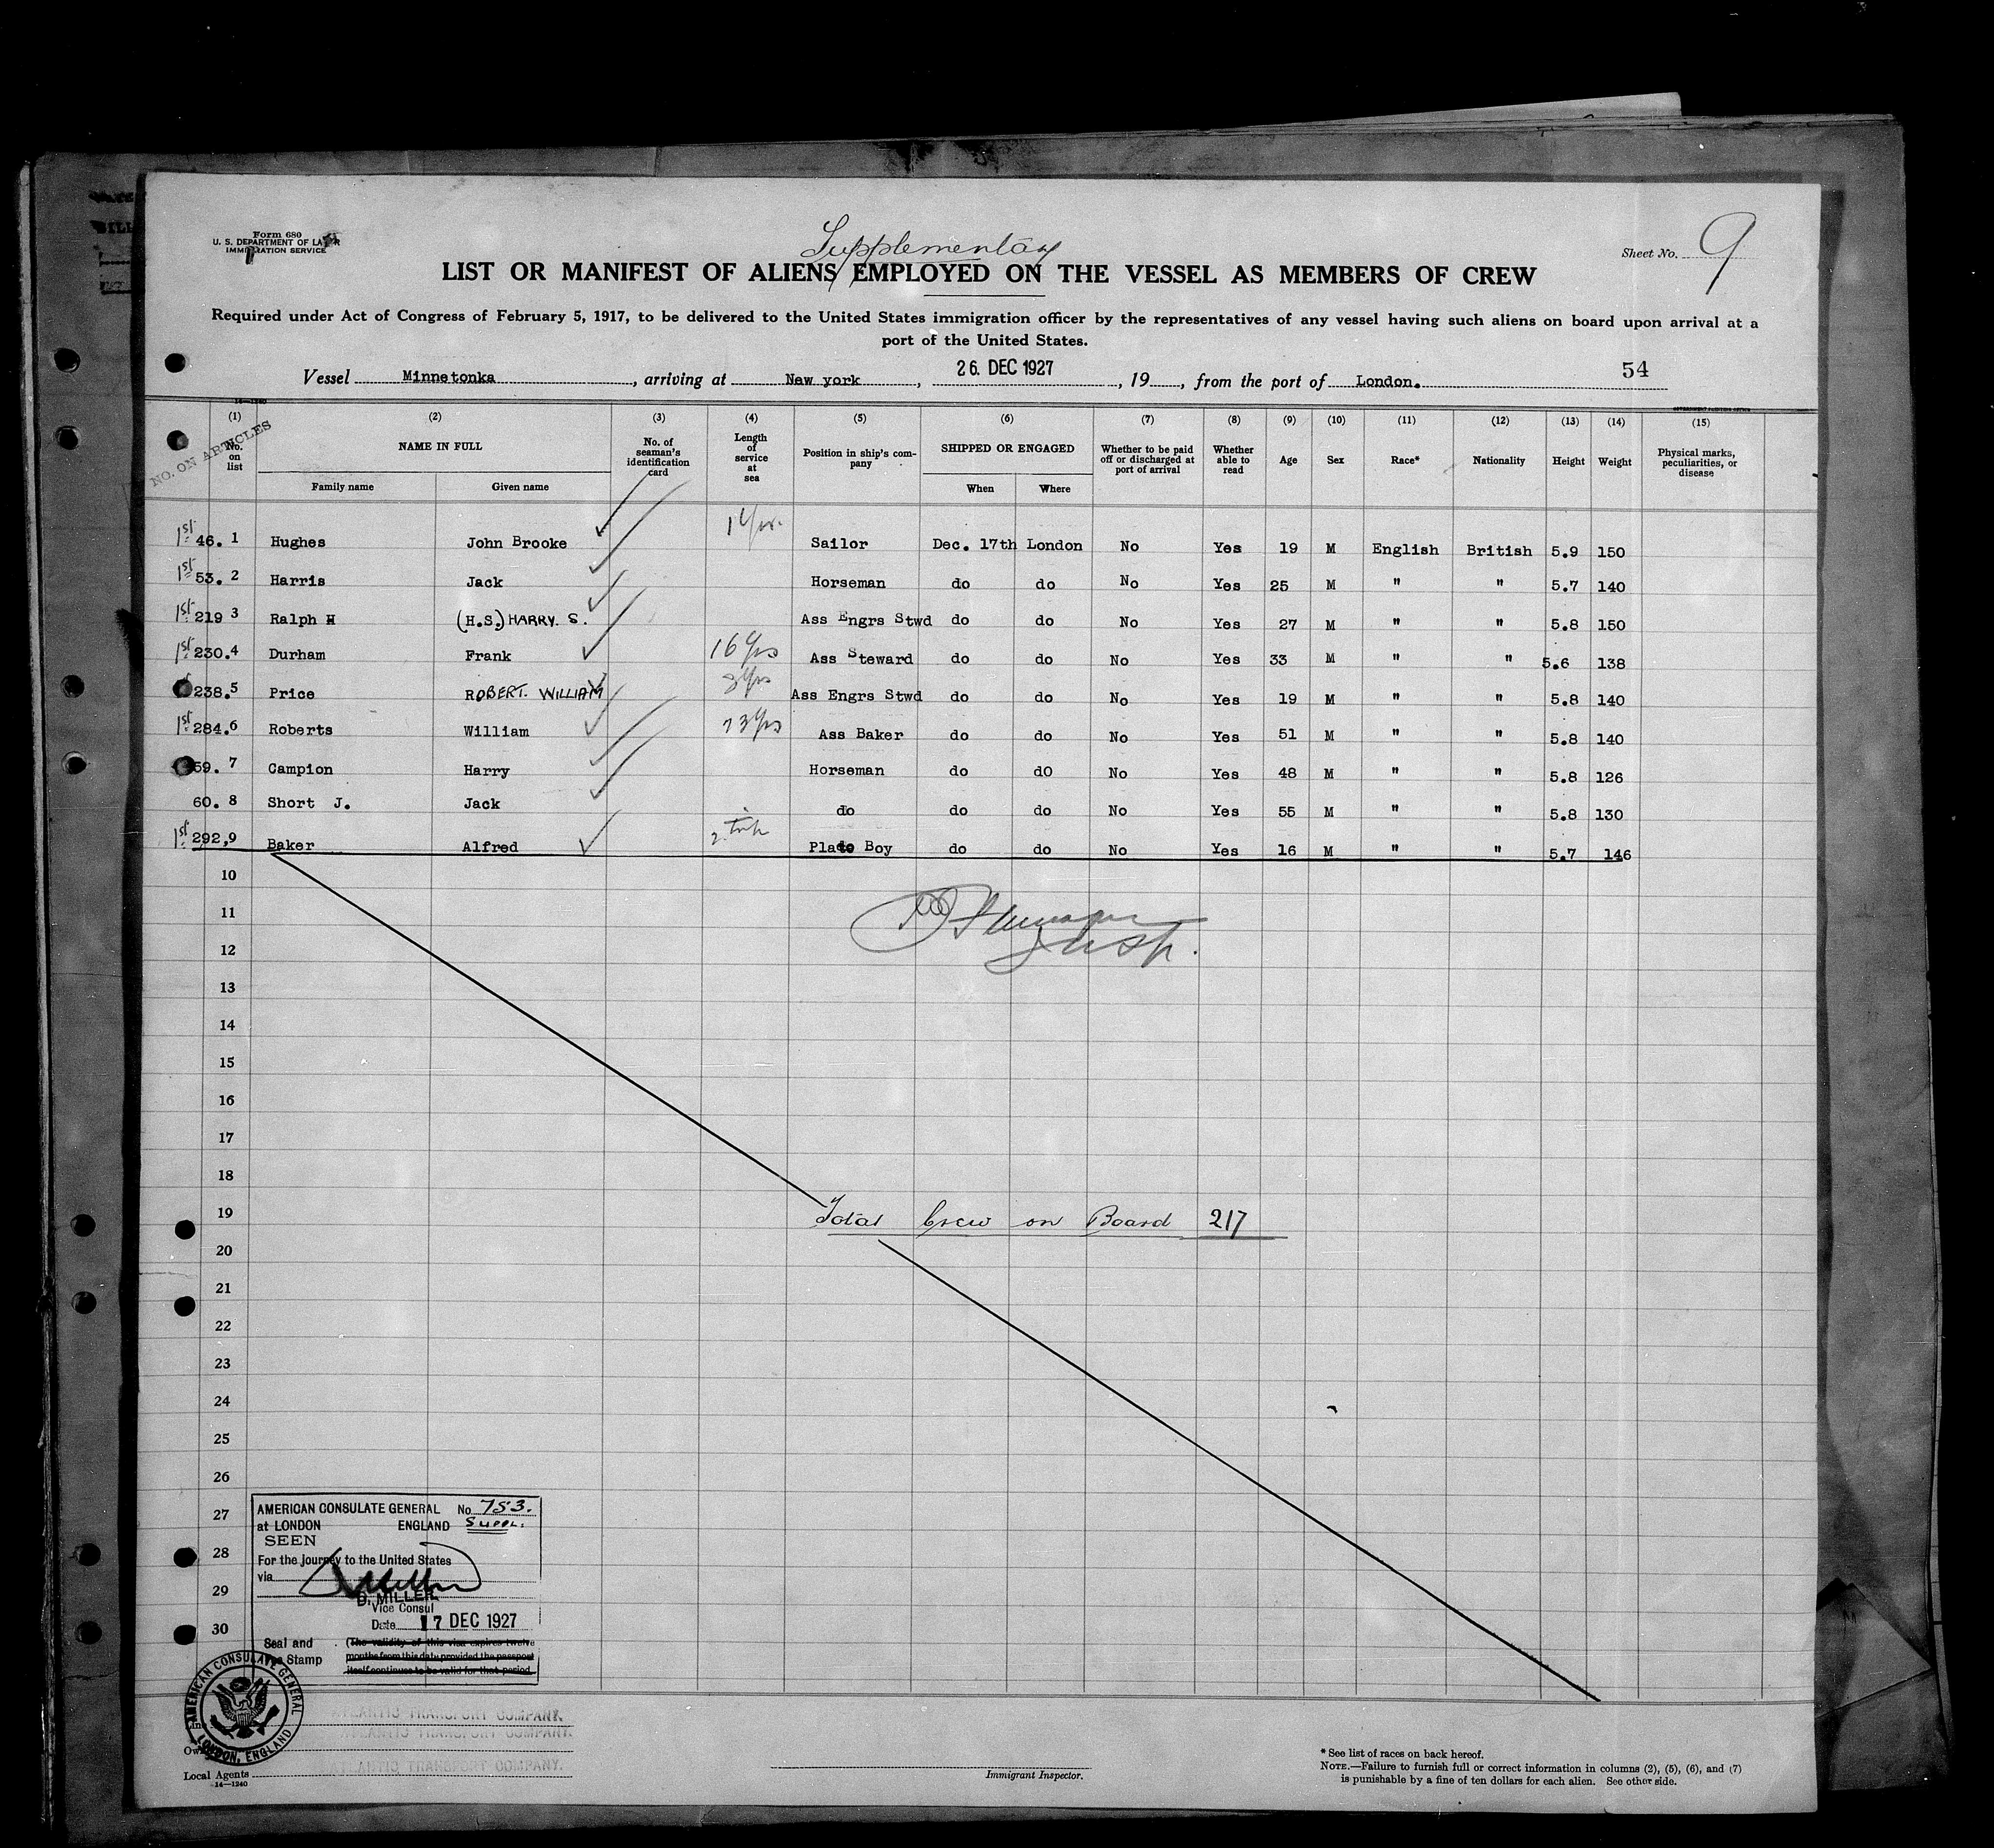 Form 680
U. S. DEPARTMENT OF LABOR
IMMIGRATION SERVICE
Supplementary
Sheet No. 9
LIST OR MANIFEST OF ALIENS EMPLOYED ON THE VESSEL AS MEMBERS OF CREW
Required under Act of Congress of February 5, 1917, to be delivered to the United States immigration officer by the representatives of any vessel having such aliens on board upon arrival at a
port of the United States.
Vessel Minnetonka, arriving at New york, 26. DEC 1927, 19, from the port of London.
54
NO. ON ARTICLES
(1) (2) (3) (4) (5) (6) (7) (8) (9) (10) (11) (12) (13) (14) (15)
No. on list NAME IN FULL Family name Given name No. of seaman's identification card Length of service at sea Position in ship's company SHIPPED OR ENGAGED When Where Whether to be paid off or discharged at port of arrival Whether able to read Age Sex Race* Nationality Height Weight Physical marks, peculiarities, or disease
1st 46. 1 Hughes John Brooke 1 Yr. Sailor Dec. 17th London No Yes 19 M English British 5.9 150
1st 53. 2 Harris Jack Horseman do do No Yes 25 M " " 5.7 140
1st 219 3 Ralph H (H.S.) HARRY. S. Ass Engrs Stwd do do No Yes 27 M " " 5.8 150
1st 230.4 Durham Frank 16 Yrs Ass Steward do do No Yes 33 M " " 5.6 138
238.5 Price ROBERT. WILLIAM Yrs Ass Engrs Stwd do do No Yes 19 M " " 5.8 140
1st 284.6 Roberts William Yrs Ass Baker do do No Yes 51 M " " 5.8 140
59. 7 Campion Harry Horseman do dO No Yes 48 M " " 5.8 126
60. 8 Short J. Jack do do do No Yes 55 M " " 5.8 130
1st 292,9 Baker Alfred 2 Plate Boy do do No Yes 16 M " " 5.7 146
10
11
12
Insp.
13
14
15
16
17
18
19 Total Crew on Board 217
20
21
22
23
24
25
26
27
28
29
30
AMERICAN CONSULATE GENERAL No 753.
at LONDON ENGLAND SUPPL.
SEEN
For the journey to the United States
via
D. MILLER
Vice Consul
Date 17 DEC 1927
Seal and
Fee Stamp
(The validity of this visa expires twelve
months from this date provided the passport
itself continues to be valid for that period.
AMERICAN CONSULATE GENERAL
LONDON, ENGLAND
Line ATLANTIC TRANSPORT COMPANY.
Owners ATLANTIC TRANSPORT COMPANY.
Local Agents ATLANTIC TRANSPORT COMPANY.
14—1240
Immigrant Inspector.
* See list of races on back hereof.
NOTE.—Failure to furnish full or correct information in columns (2), (5), (6), and (7)
is punishable by a fine of ten dollars for each alien. See other side.